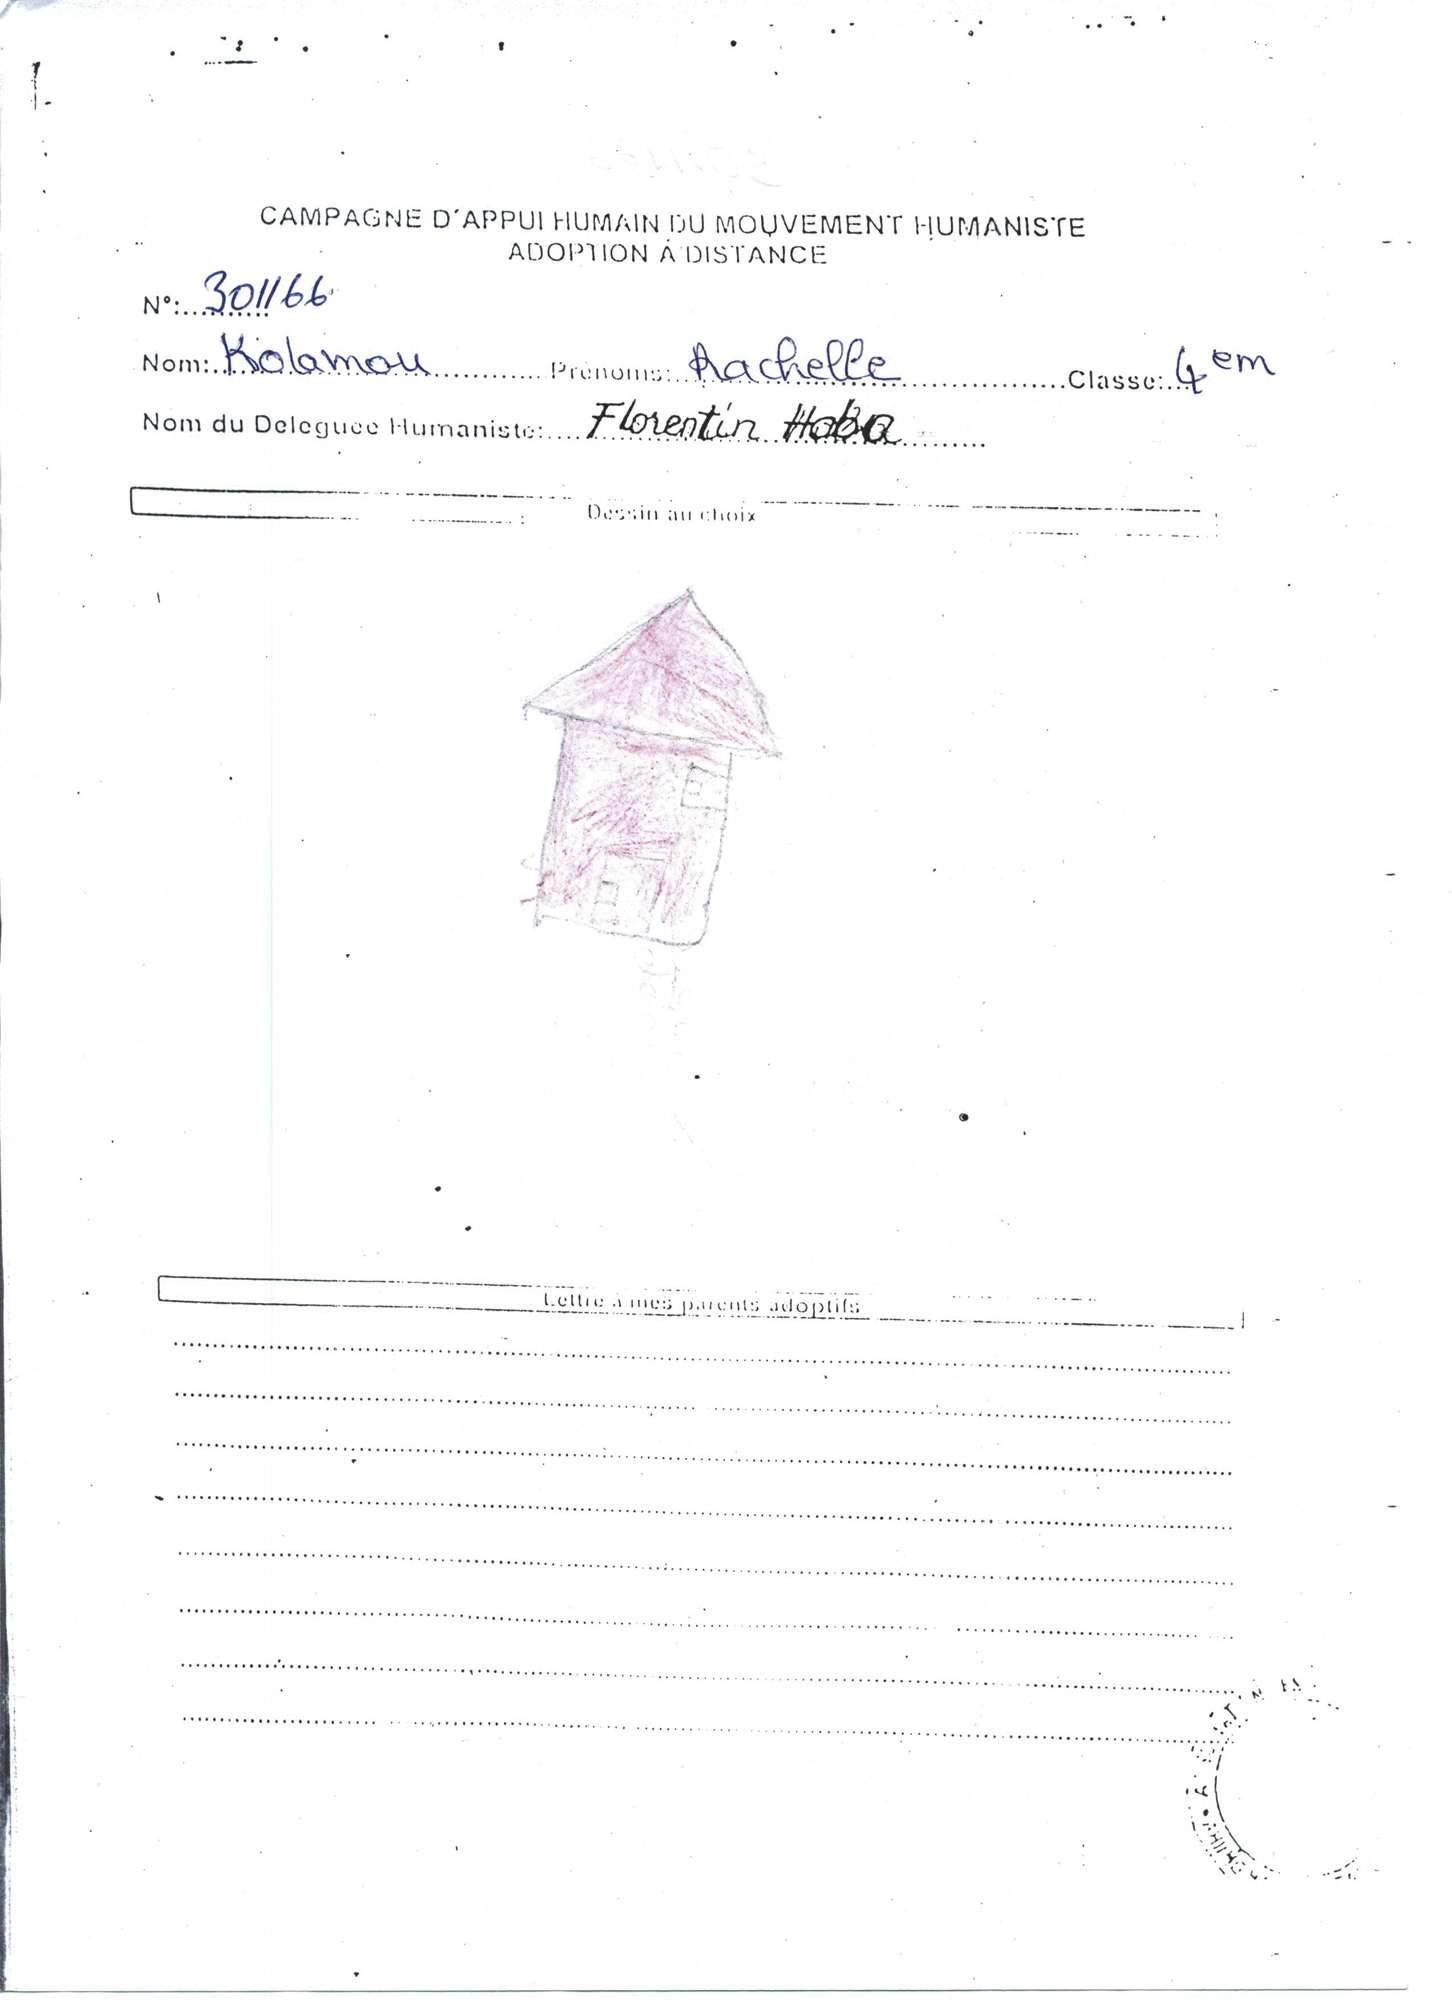 CAMPAGNE D'APPUI HUMAIN DU MOUVEMENT HUMANISTE
ADOPTION À DISTANCE
N°: 301166
Nom: Kolamou Prénoms: Rachelle Classe: 4em
Nom du Deleguee Humaniste: Florentin Haba
Dessin au choix
Lettre à mes parents adoptifs